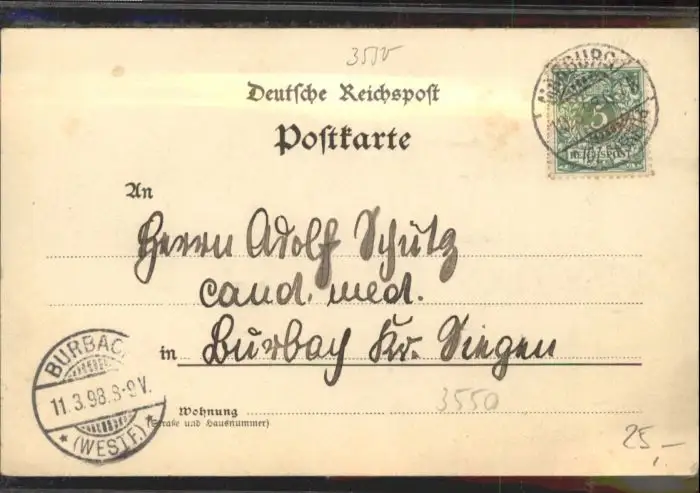 3550
Deutsche Reichspost
Postkarte
5
An
Herrn Adolf Schütz
cand. med.
in Burbach Kr. Siegen
BURBACH
11.3.98.8-9V.
* (WESTF.) *
Wohnung
(Straße und Hausnummer)
3550
25,-